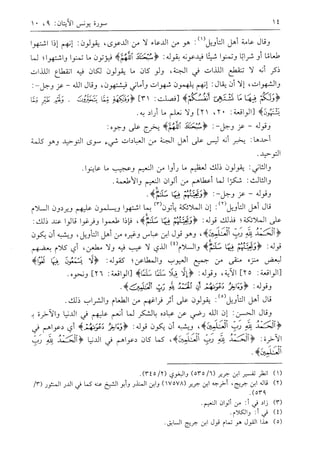 ١٤ سورة يونس الآيتان: ٩، ١٠
وقال عامة أهل التأويل(١): هو من الدعاء لا من الدعوى، يقولون: إنهم إذا اشتهوا
طعامًا أو شرابًا وتمنوا شيئًا فيدعونه بقوله: ﴿سُبْحَٰنَكَ ٱللَّهُمَّ﴾ فيؤتون ما تمنوا واشتهوا؛ لما
ذكر أنه لا تنقطع اللذات في الجنة، ولو كان ما يقولون لكان فيه انقطاع اللذات
والشهوات، إلا أن يقال: إنهم يلهمون شهوات وأماني فيشتهون، وقال الله - عز وجل -:
﴿وَلَكُمْ فِيهَا مَا تَشْتَهِىٓ أَنفُسُكُمْ﴾ [فصلت: ٣١] ﴿وَفَٰكِهَةٍ مِّمَّا يَتَخَيَّرُونَ . وَلَحْمِ طَيْرٍ مِّمَّا
يَشْتَهُونَ﴾ [الواقعة: ٢٠، ٢١] ولا نعلم ما أراد به.
وقوله - عز وجل -: ﴿سُبْحَٰنَكَ ٱللَّهُمَّ﴾ يخرج على وجوه:
أحدها: يخبر أنه ليس على أهل الجنة من العبادات شيء سوى التوحيد وهو كلمة
التوحيد.
والثاني: يقولون ذلك لعظيم ما رأوا من النعيم وعجيب ما عاينوا.
والثالث: شكرًا لما أعطاهم من ألوان النعيم والأطعمة.
وقوله - عز وجل -: ﴿وَتَحِيَّتُهُمْ فِيهَا سَلَٰمٌ﴾.
قال أهل التأويل(٢): إن الملائكة يأتون(٣) بما اشتهوا ويسلمون عليهم ويردون السلام
على الملائكة؛ فذلك قوله: ﴿وَتَحِيَّتُهُمْ فِيهَا سَلَٰمٌ﴾، فإذا طعموا وفرغوا قالوا عند ذلك:
﴿ٱلْحَمْدُ لِلَّهِ رَبِّ ٱلْعَٰلَمِينَ﴾، وهو قول ابن عباس وغيره من أهل التأويل، ويشبه أن يكون
قوله: ﴿وَتَحِيَّتُهُمْ فِيهَا سَلَٰمٌ﴾ والسلام(٤) الذي لا عيب فيه ولا مطعن، أي كلام بعضهم
لبعض منزه منقى من جميع العيوب والمطاعن؛ كقوله: ﴿لَا يَسْمَعُونَ فِيهَا لَغْوًا﴾
[الواقعة: ٢٥] الآية، وقوله: ﴿إِلَّا قِيلًا سَلَٰمًا سَلَٰمًا﴾ [الواقعة: ٢٦] ونحوه.
وقوله: ﴿وَءَاخِرُ دَعْوَىٰهُمْ أَنِ ٱلْحَمْدُ لِلَّهِ رَبِّ ٱلْعَٰلَمِينَ﴾.
قال أهل التأويل(٥): يقولون على أثر فراغهم من الطعام والشراب ذلك.
وقال الحسن: إن الله رضي عن عباده بالشكر لما أنعم عليهم في الدنيا والآخرة بـ
﴿ٱلْحَمْدُ لِلَّهِ رَبِّ ٱلْعَٰلَمِينَ﴾، ويشبه أن يكون قوله: ﴿وَءَاخِرُ دَعْوَىٰهُمْ﴾ أي دعواهم في
الآخرة: ﴿ٱلْحَمْدُ لِلَّهِ رَبِّ ٱلْعَٰلَمِينَ﴾، كما كان دعواهم في الدنيا ﴿ٱلْحَمْدُ لِلَّهِ رَبِّ
ٱلْعَٰلَمِينَ﴾.
(١) انظر تفسير ابن جرير (٥٣٥/٦) والبغوي (٣٤٥/٢).
(٢) قاله ابن جريج، أخرجه ابن جرير (١٧٥٧٨) وابن المنذر وأبو الشيخ عنه كما في الدر المنثور (٣/
٥٣٩).
(٣) زاد في أ: من ألوان النعيم.
(٤) في أ: والكلام.
(٥) هذا القول هو تمام قول ابن جريج السابق.